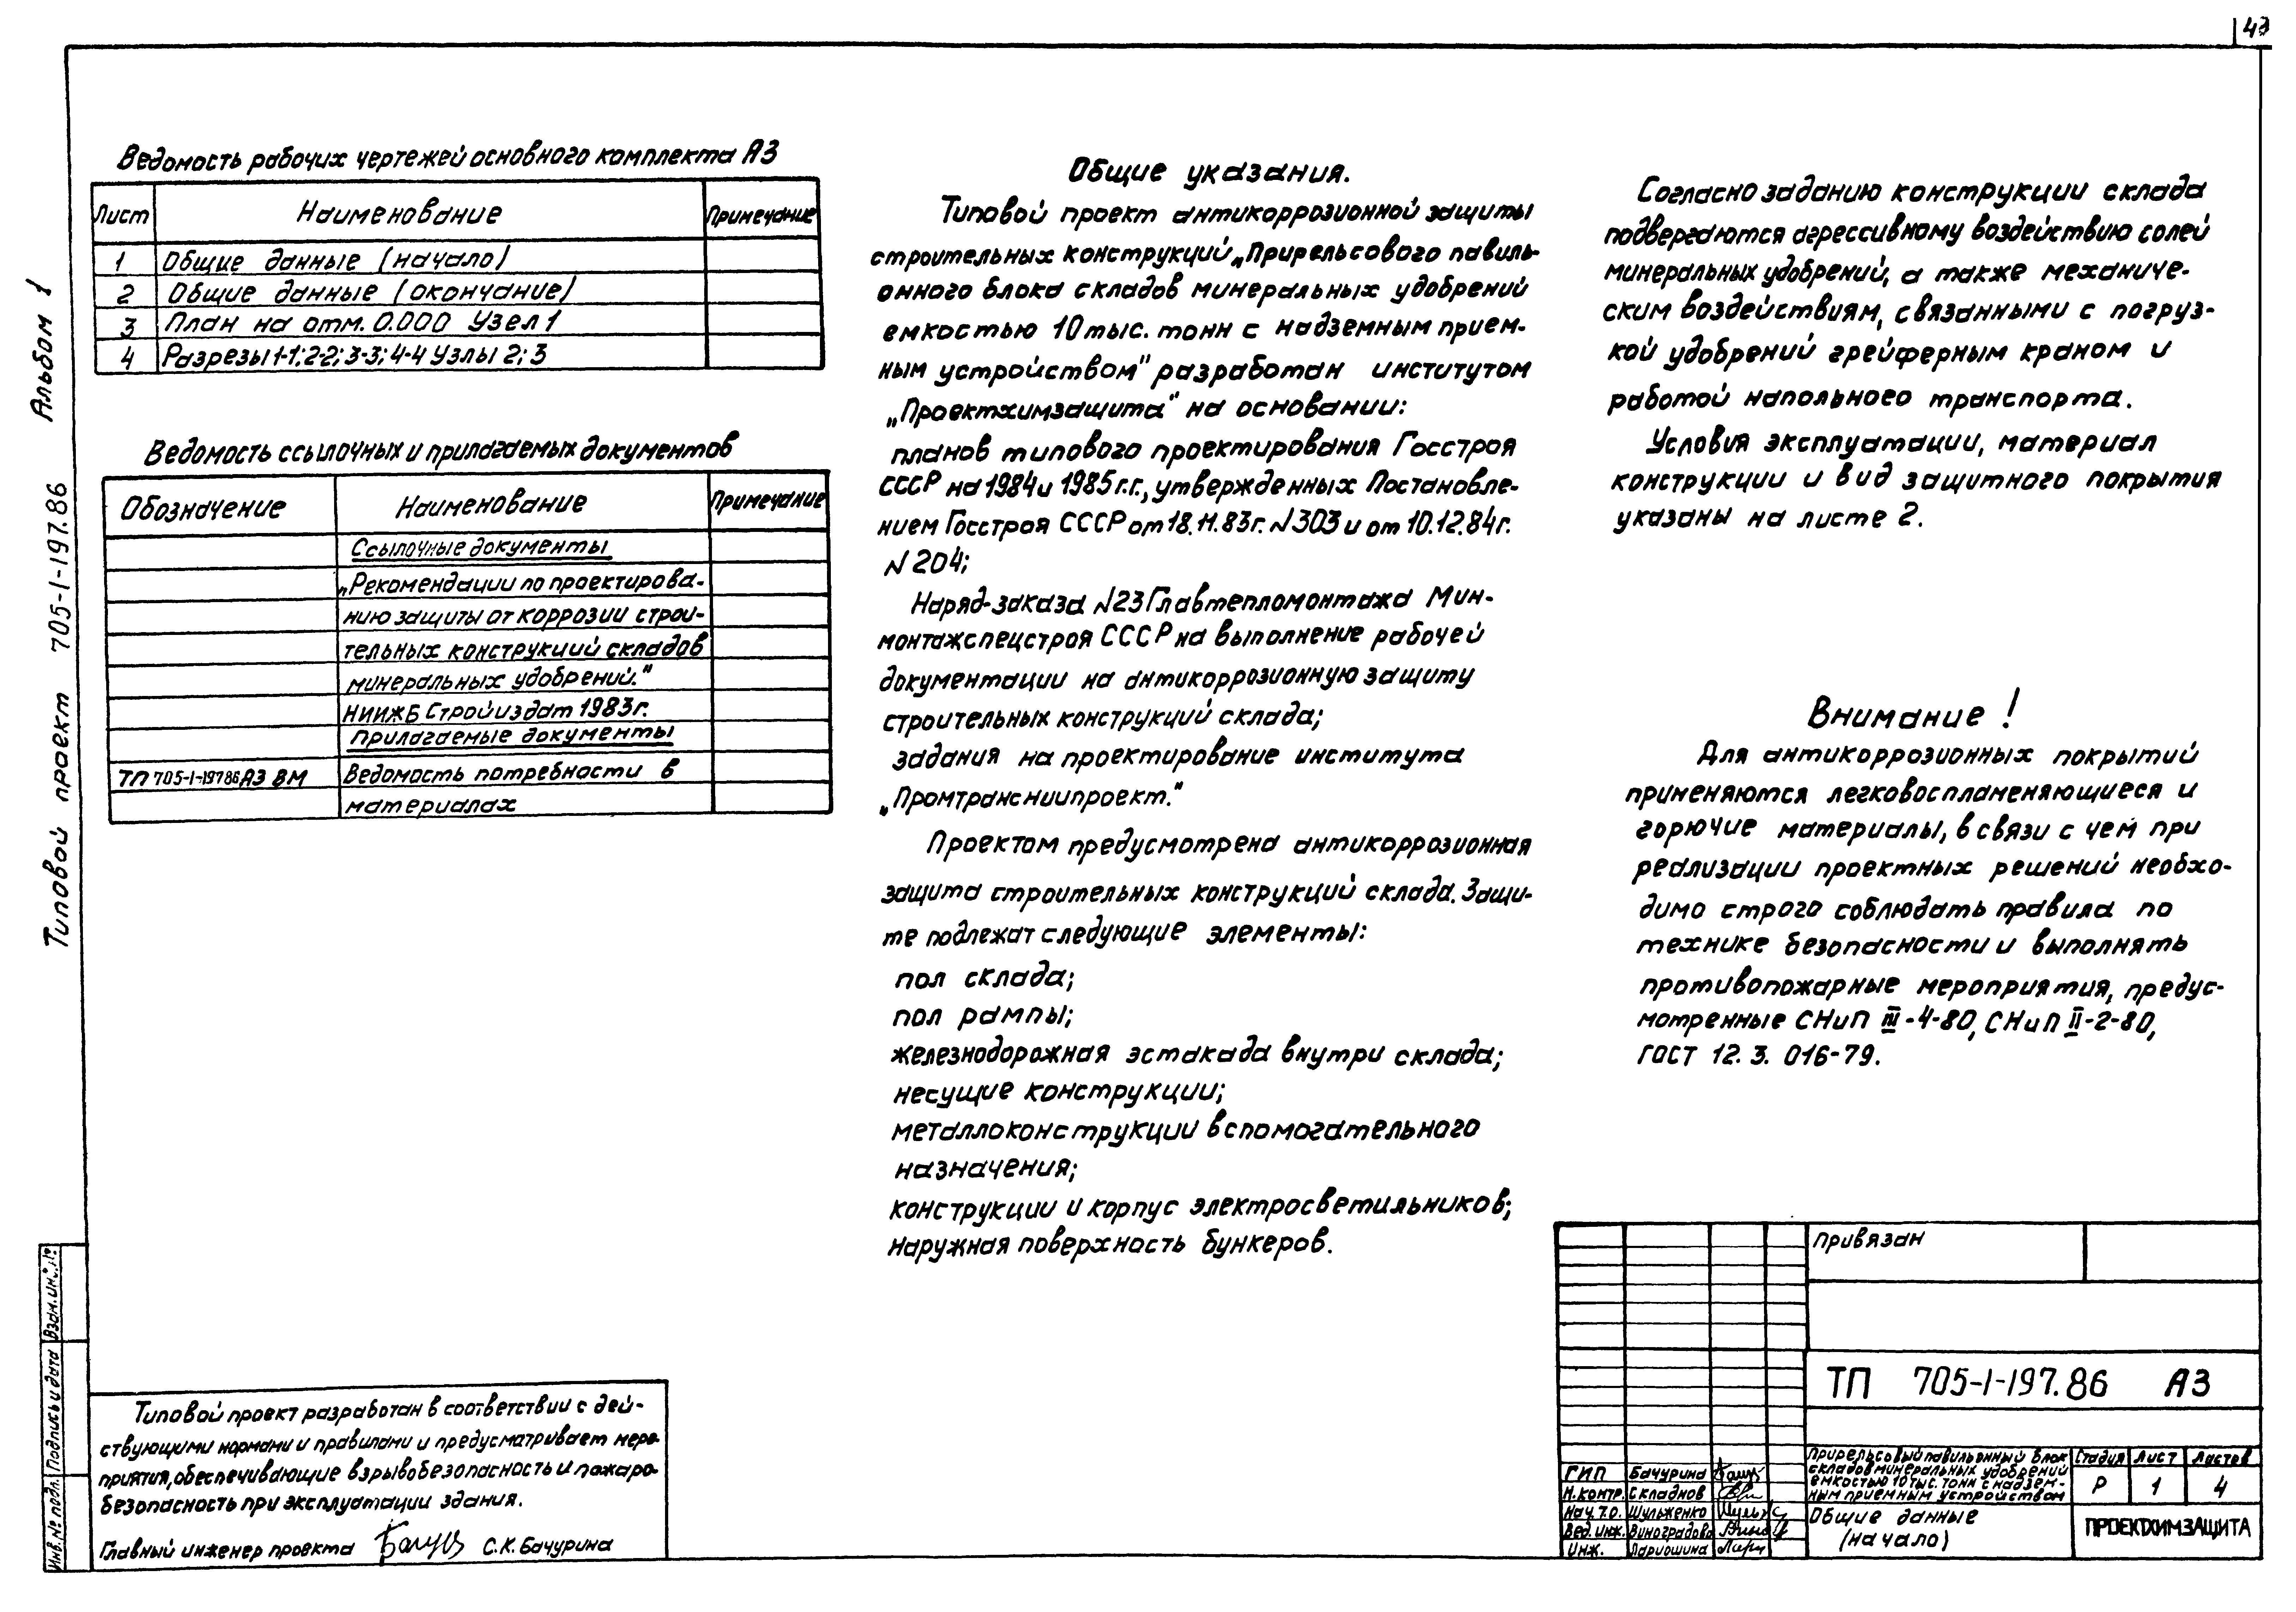 Альбом 1
Типовой проект 705-1-197.86
Ведомость рабочих чертежей основного комплекта АЗ
Лист Наименование Примечание
1 Общие данные (начало)
2 Общие данные (окончание)
3 План на отм. 0.000 Узел 1
4 Разрезы 1-1; 2-2; 3-3; 4-4 Узлы 2; 3
Ведомость ссылочных и прилагаемых документов
Обозначение Наименование Примечание
Ссылочные документы
„Рекомендации по проектирова-
нию защиты от коррозии строи-
тельных конструкций складов
минеральных удобрений."
НИИЖБ Стройиздат 1983г.
Прилагаемые документы
ТП 705-1-197.86 АЗ ВМ Ведомость потребности в
материалах
Общие указания.
Типовой проект антикоррозионной защиты
строительных конструкций „Прирельсового павиль-
онного блока складов минеральных удобрений
емкостью 10 тыс. тонн с надземным прием-
ным устройством" разработан институтом
„Проектхимзащита" на основании:
планов типового проектирования Госстроя
СССР на 1984 и 1985 г.г., утвержденных Постановле-
нием Госстроя СССР от 18.11.83г. N303 и от 10.12.84г.
N 204;
Наряд-заказа N23 Главтепломонтажа Мин-
монтажспецстроя СССР на выполнение рабочей
документации на антикоррозионную защиту
строительных конструкций склада;
задания на проектирование института
„Промтрансниипроект."
Проектом предусмотрена антикоррозионная
защита строительных конструкций склада. Защи-
те подлежат следующие элементы:
пол склада;
пол рампы;
железнодорожная эстакада внутри склада;
несущие конструкции;
металлоконструкции вспомогательного
назначения;
конструкции и корпус электросветильников;
наружная поверхность бункеров.
Согласно заданию конструкции склада
подвергаются агрессивному воздействию солей
минеральных удобрений, а также механиче-
ским воздействиям, связанными с погруз-
кой удобрений грейферным краном и
работой напольного транспорта.
Условия эксплуатации, материал
конструкции и вид защитного покрытия
указаны на листе 2.
Внимание!
Для антикоррозионных покрытий
применяются легковоспламеняющиеся и
горючие материалы, в связи с чем при
реализации проектных решений необхо-
димо строго соблюдать правила по
технике безопасности и выполнять
противопожарные мероприятия, предус-
мотренные СНиП III-4-80, СНиП II-2-80,
ГОСТ 12. 3. 016-79.
Типовой проект разработан в соответствии с дей-
ствующими нормами и правилами и предусматривает меро-
приятия, обеспечивающие взрывобезопасность и пожаро-
безопасность при эксплуатации здания.
Главный инженер проекта С.К. Бачурина
Инв. № подл. Подпись и дата Взам. инв. №
Привязан
ТП 705-1-197.86 АЗ
ГИП Бачурина
Н.контр. Складнов
Нач. т.о. Шульженко
Вед. инж. Виноградова
Инж. Лариошина
Прирельсовый павильонный блок
складов минеральных удобрений
емкостью 10 тыс. тонн с надзем-
ным приемным устройством
Стадия Лист Листов
Р 1 4
Общие данные
(начало)
ПРОЕКТХИМЗАЩИТА